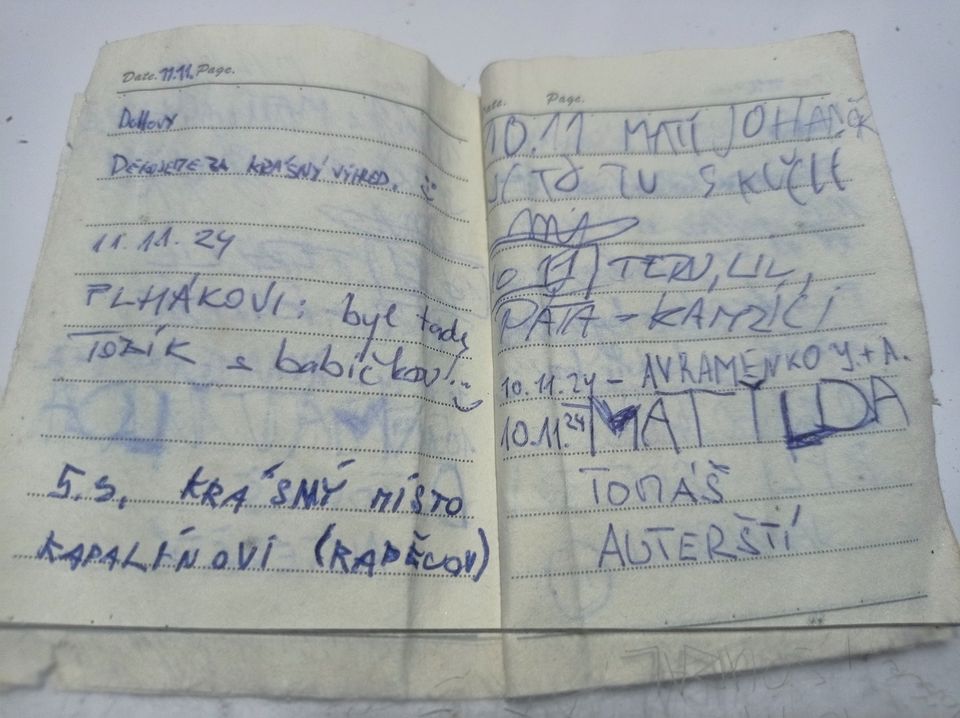 Date. 11.11. Page.
Dohovy
DĚKUJEME ZA KRÁSNÝ VÝHLED.
11.11.24
PLHÁKOVI: byl tady
TOZÍK s babičkou!
5.5. KRÁSNÝ MÍSTO
KAPALÍNOVI (RADĚCOV)
Date. Page.
10.11 MATI JOHANČK
JE TO TU SKVĚLÉ
10.11 TERY, LIL,
PÁTA - KAMZÍCI
10.11.24 - AVRAMENKO Y.+A.
10.11.24 MATYLDA
TOMÁŠ
AUTERŠTÍ